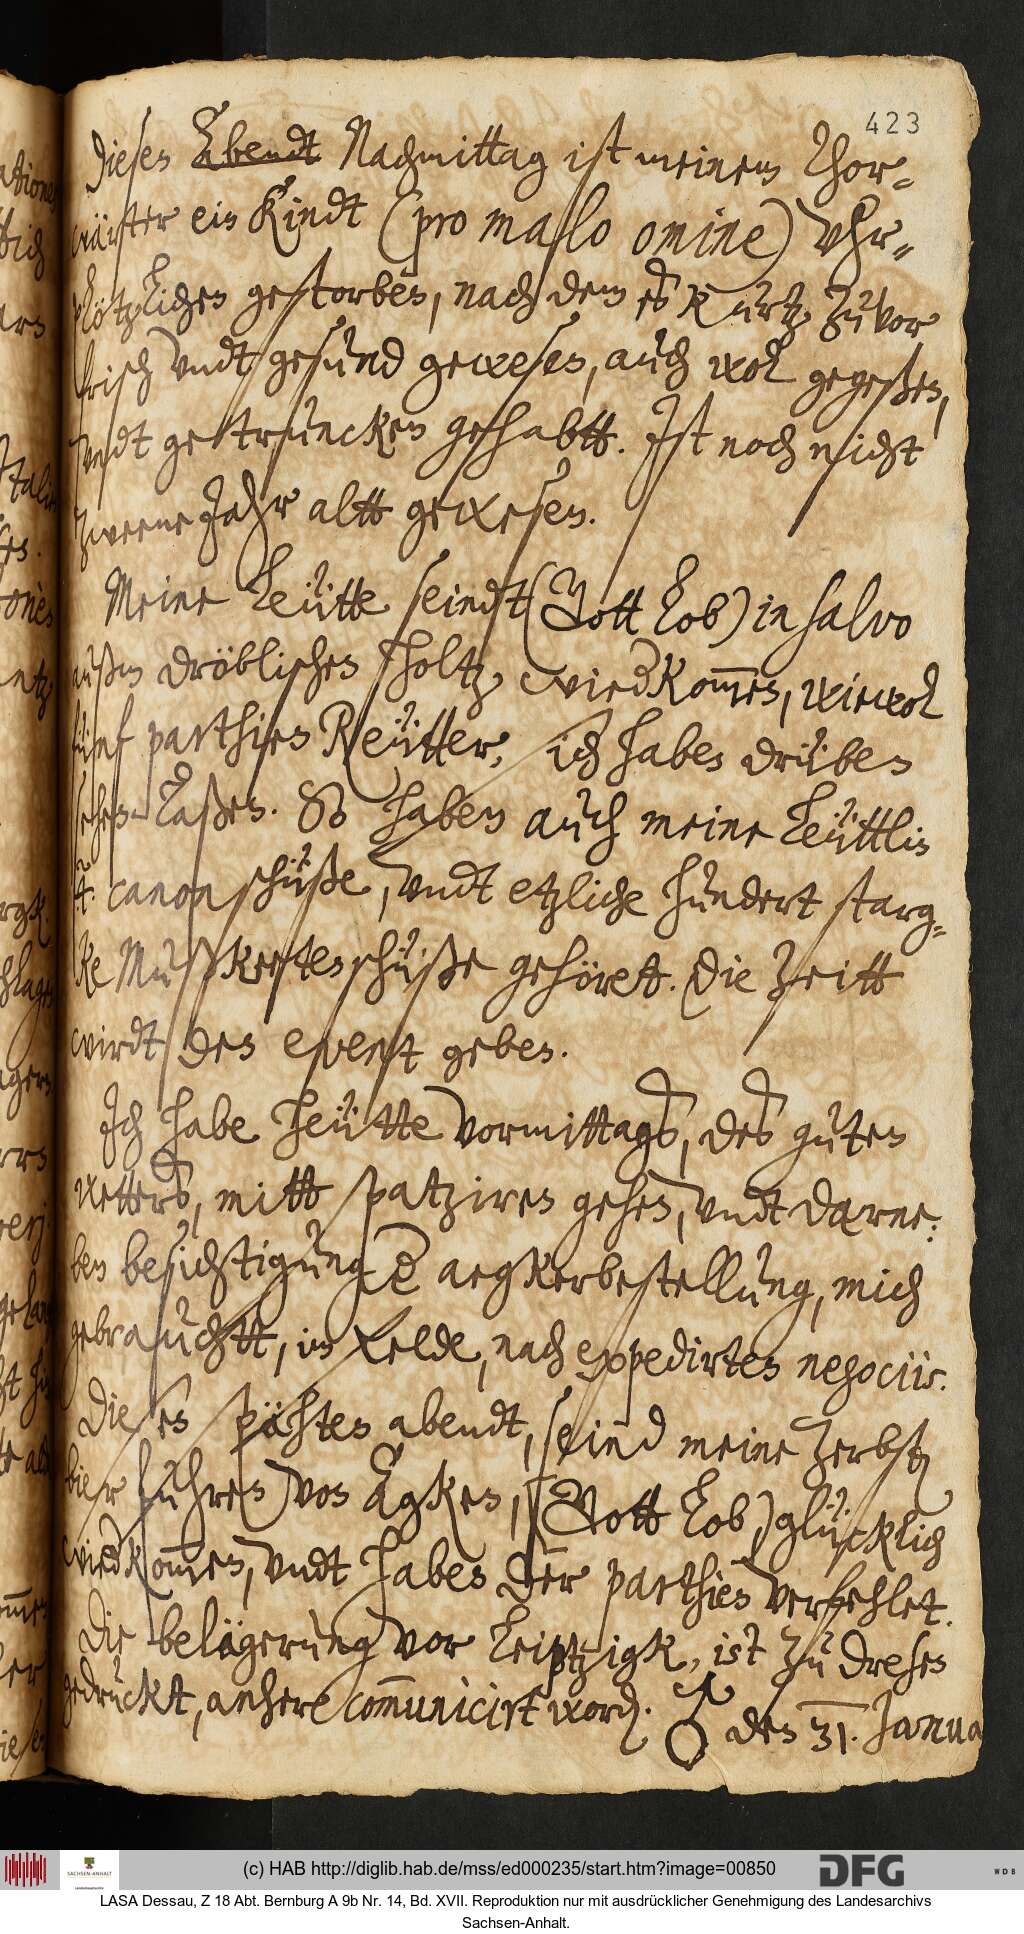 423
Diesen Abendt Nachmittag ist meinem Thor-
wärter ein Kindt (pro malo omine) vhr-
plötzlichen gestorben, nach dem es kurtz zuvor
frisch vndt gesund gewesen, auch wol gegeßen,
vndt getruncken gehabtt. Ist noch nicht
zweene Jahr altt gewesen.
Meine Leütte seindt (Gott lob) in salvo
außm dröblischen holtz, wiedkommen, wiewol
fünf parthien Reütter, sich haben drüben
sehen laßen. So haben auch meine Leüttlin
4. canonschüße, vndt etzliche hundert starg-
ke Mußkeetenschüße gehörett. Die Zeitt
wirdt den event geben.
Ich habe heütte vormittags, des guten
wetters, mitt spatziren gehen, vndt darne-
ben besichtigung der agkerbestellung, mich
gebrauchtt, in Felde, nach expedirten negociis.
Diesen spähten abendt, seind meine Zerbst
bier fuhren von Agken, (Gott lob) glücklich
wiedkommen, vndt haben der parthien verfehlet.
Die belägerung vor Leiptzigk, ist zu Dresen
gedruckt, anhero communicirt word.
♂ den 31. Janua
(c) HAB http://diglib.hab.de/mss/ed000235/start.htm?image=00850
SACHSEN-ANHALT
DFG
WDB
LASA Dessau, Z 18 Abt. Bernburg A 9b Nr. 14, Bd. XVII. Reproduktion nur mit ausdrücklicher Genehmigung des Landesarchivs
Sachsen-Anhalt.